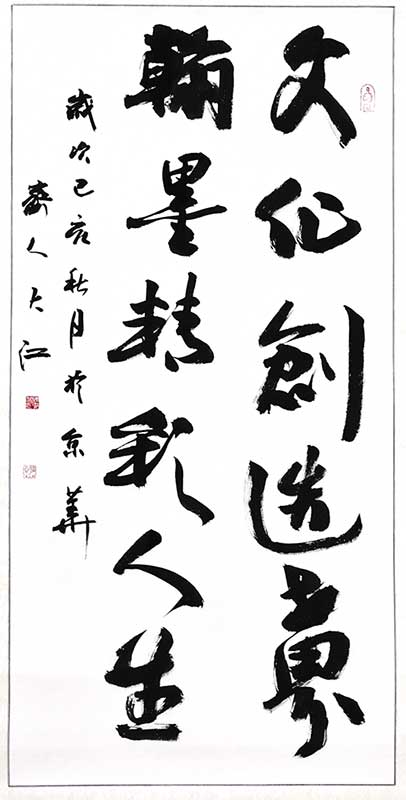 文化創造世界
翰墨精彩人生
歲次己亥秋月於京華
齊人大江